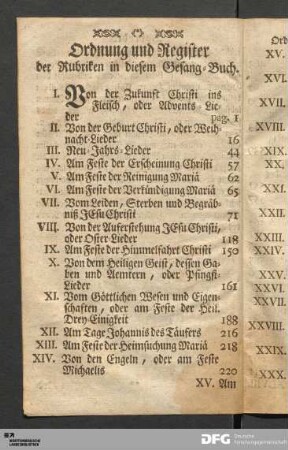 (*)
Ordnung und Register
der Rubriken in diesem Gesang-Buch.
I. Von der Zukunft Christi ins
Fleisch, oder Advents-Lie-
der pag. 1
II. Von der Geburt Christi, oder Weih-
nacht-Lieder 16
III. Neu-Jahrs-Lieder 44
IV. Am Feste der Erscheinung Christi 57
V. Am Feste der Reinigung Mariä 62
VI. Am Feste der Verkündigung Mariä 65
VII. Vom Leiden, Sterben und Begräb-
niß JEsu Christi 71
VIII. Von der Auferstehung JEsu Christi,
oder Oster-Lieder 118
IX. Am Feste der Himmelfahrt Christi 150
X. Von dem Heiligen Geist, dessen Ga-
ben und Aemtern, oder Pfingst-
Lieder 161
XI. Vom Göttlichen Wesen und Eigen-
schaften, oder am Feste der Heil.
Drey-Einigkeit 188
XII. Am Tage Johannis des Täufers 216
XIII. Am Feste der Heimsuchung Mariä 218
XIV. Von den Engeln, oder am Feste
Michaelis 220
XV. Am
Ord
XV.
XVI.
XVII.
XVIII.
XIX.
XX.
XXII.
XXIII.
XXIV.
XXVIII.
XXIX.
XXX.
DFG Deutsche
Forschungsgemeinschaft